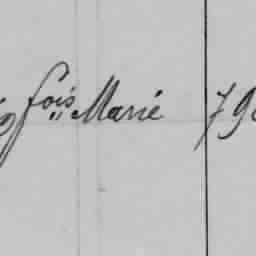 fois Marie 79